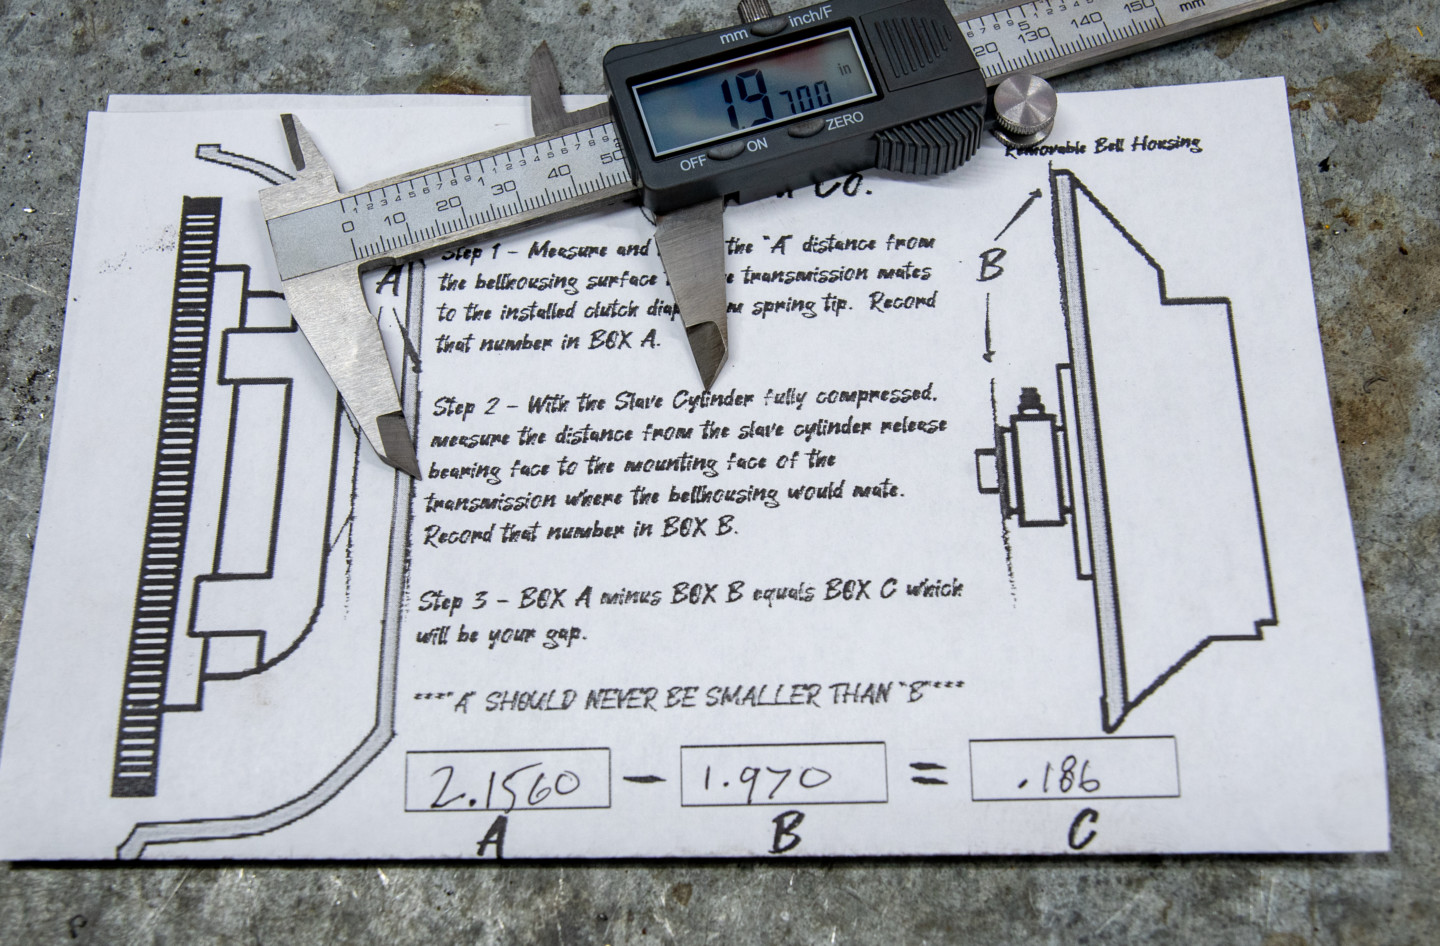 mm inch/F
1.9700 in
OFF ON ZERO
0 10 20 30 40 50
130 140 150 mm
Removable Bell Housing
Co.
A
B
Step 1 - Measure and the "A" distance from
the bellhousing surface transmission mates
to the installed clutch spring tip. Record
that number in BOX A.
Step 2 - With the Slave Cylinder fully compressed,
measure the distance from the slave cylinder release
bearing face to the mounting face of the
transmission where the bellhousing would mate.
Record that number in BOX B.
Step 3 - BOX A minus BOX B equals BOX C which
will be your gap.
****"A" SHOULD NEVER BE SMALLER THAN "B"****
2.1560 - 1.970 = .186
A B C